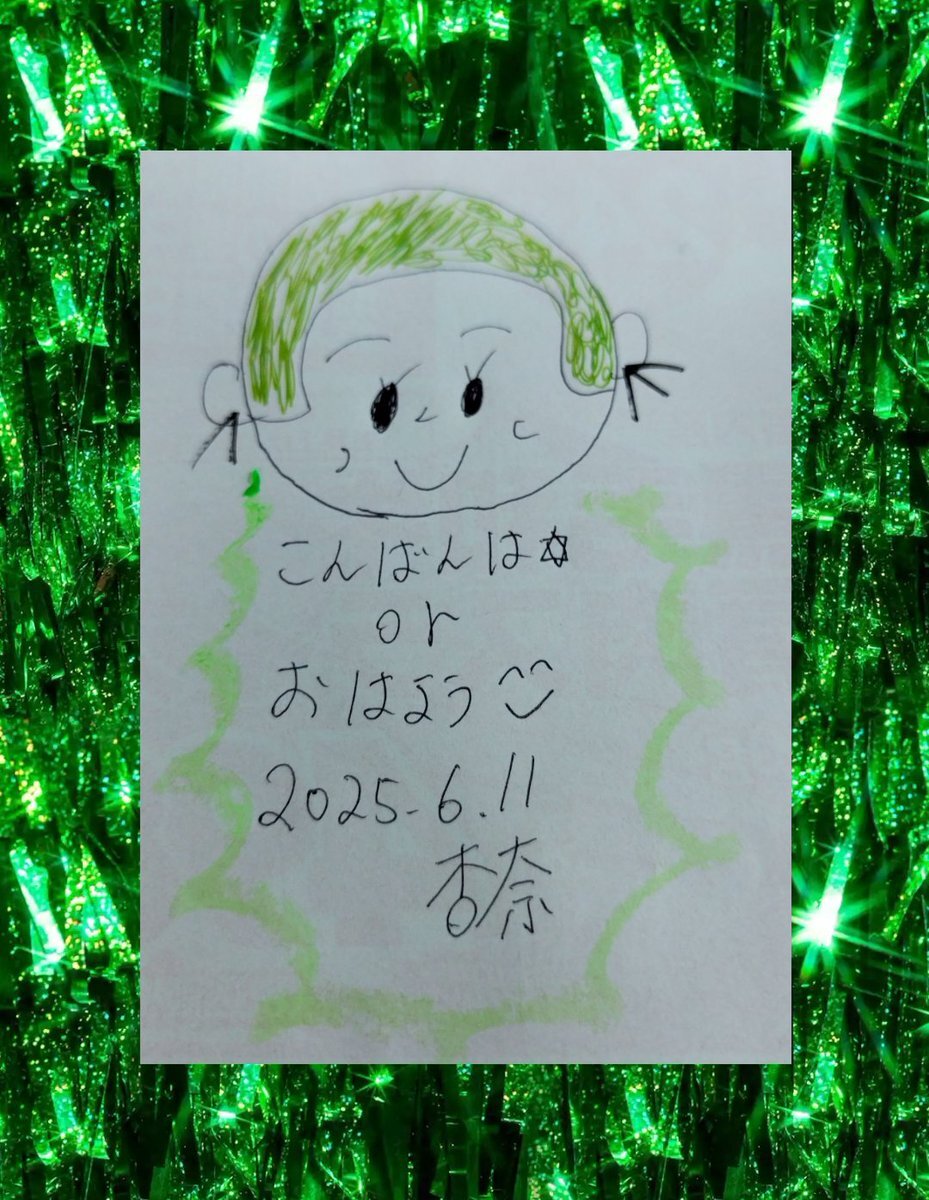 こんばんは✡
or
おはよう
2025-6.11
杏奈